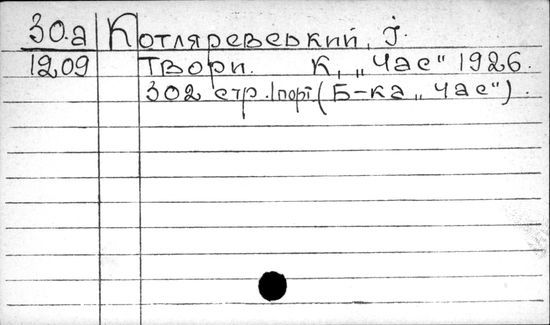 30.а Котляревський, І.
1209 Твори. К, „Час" 1926.
302 стр. 1порт. (Б-ка „Час").